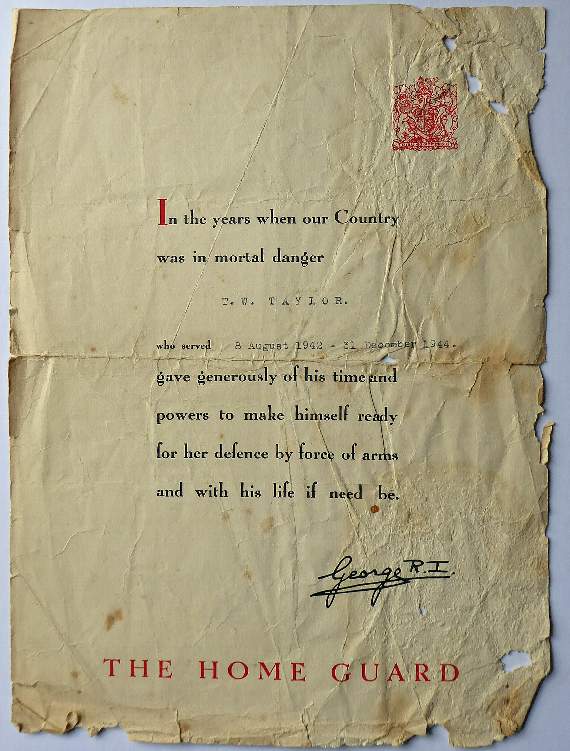 In the years when our Country
was in mortal danger
T.W. TAYLOR.
who served 8 August 1942 - 31 December 1944.
gave generously of his time and
powers to make himself ready
for her defence by force of arms
and with his life if need be.
George R.I.
THE HOME GUARD